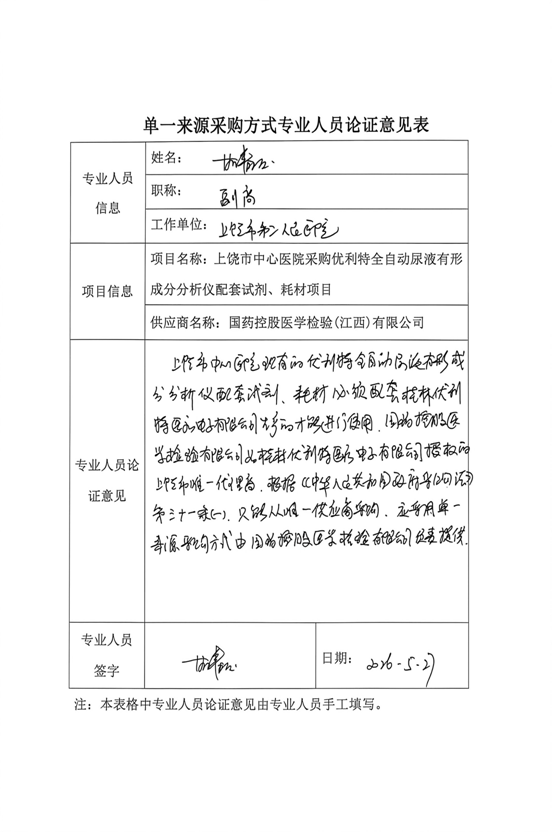 单一来源采购方式专业人员论证意见表
专业人员
信息
姓名：
职称：副高
工作单位：上饶市第二人民医院
项目信息
项目名称：上饶市中心医院采购优利特全自动尿液有形
成分分析仪配套试剂、耗材项目
供应商名称：国药控股医学检验(江西)有限公司
专业人员论
证意见
上饶市中心医院现有的优利特全自动尿液有形成
分分析仪配套试剂、耗材必须配套桂林优利
特医疗电子有限公司生产的才能进行使用，国药控股医
学检验有限公司为桂林优利特医疗电子有限公司授权的
上饶市唯一代理商，根据《中华人民共和国政府采购法》
第三十一条(一)，只能从唯一供应商采购，应采用单一
来源采购方式由国药控股医学检验有限公司负责提供.
专业人员
签字
日期：2026-5-27
注：本表格中专业人员论证意见由专业人员手工填写。